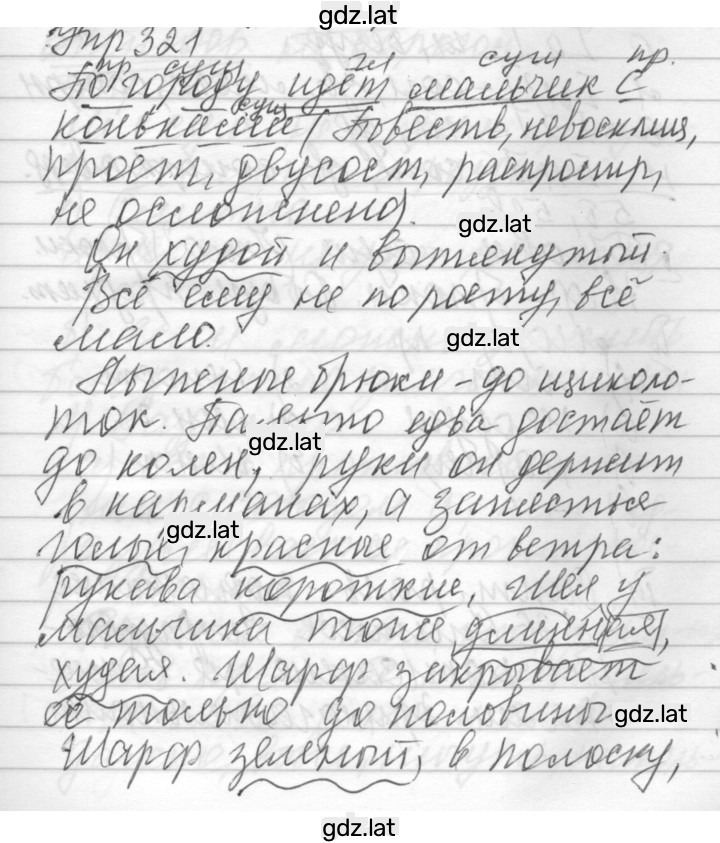 gdz.lat
Упр 321
пр. сущ гл сущ пр.
По городу идёт мальчик с
сущ
коньками (Повеств, невосклиц,
прост, двусост, распростр,
не осложнено).
gdz.lat
Он худой и вытянутый.
Всё ему не по росту, всё
мало.
gdz.lat
Лыжные брюки - до щиколо-
ток. Пальто едва достаёт
gdz.lat
до колен, руки он держит
в карманах, а запястья
gdz.lat
голые, красные от ветра:
рукава короткие. Шея у
мальчика тоже длинная,
худая. Шарф закрывает
её только до половины
gdz.lat
Шарф зеленый, в полоску,
gdz.lat